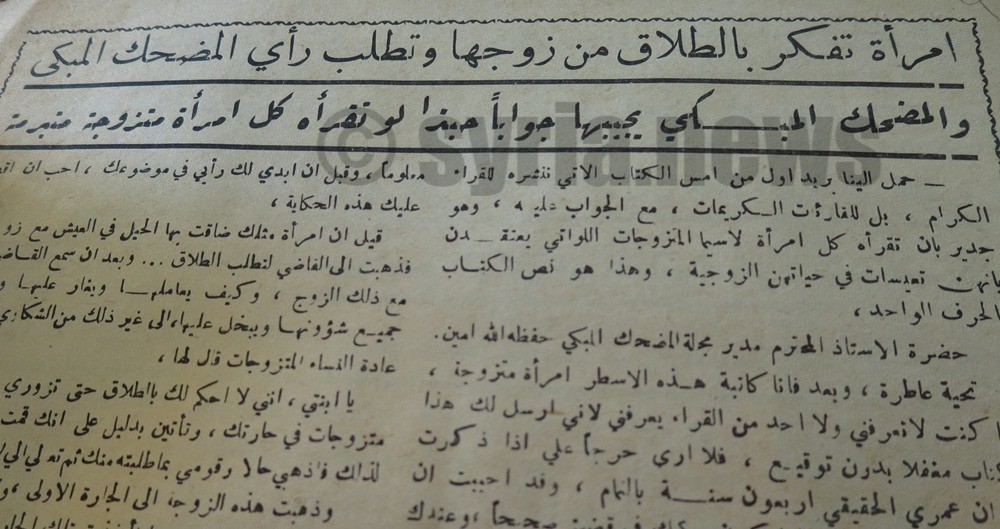 امرأة تفكر بالطلاق من زوجها وتطلب رأي المضحك المبكي
والمضحك المبكي يجيبها جواباً حبذا لو تقرأه كل امرأة متزوجة متبرمة
© syria.news
— حمل الينا بريد اول من امس الكتاب الآتي ننشره للقراء
الكرام ، بل للقارئات الكريمات ، مع الجواب عليه ، وهو
جدير بان تقرأه كل امرأة لاسيما المتزوجات اللواتي يعتقدن
بانهن تعيسات في حياتهن الزوجية ، وهذا هو نص الكتاب
بالحرف الواحد ،
حضرة الاستاذ المحترم مدير مجلة المضحك المبكي حفظه الله امين.
تحية عاطرة ، وبعد فانا كاتبة هذه الاسطر امرأة متزوجة ،
كنت لا تعرفني ولا احد من القراء يعرفني لاني ارسل لك هذا
مغفلا بدون توقيع ، فلا ارى حرجاً علي اذا ذكرت
ان عمري الحقيقي اربعون سنة بالتمام ، وقد احببت ان
صحيحاً ، وعندك
معلوماً ، وقبل ان ابدي لك رأيي في موضوعك ، احب ان
عليك هذه الحكاية ،
قيل ان امرأة مثلك ضاقت بها الحيل في العيش مع
فذهبت الى القاضي لتطلب الطلاق ... وبعد ان سمع
مع ذلك الزوج ، وكيف يعاملها ويغار عليها
جميع شؤونها ويبخل عليها، الى غير ذلك من الشكاوي
عادة النساء المتزوجات قال لها ،
يا ابنتي ، انني لا احكم لك بالطلاق حتى تزوري
متزوجات في حارتك ، وتأتين بدليل على انك قمت
لذلك فاذهبي حالا وقومي بما طلبته منك ثم تعالي الي
وذهبت هذه الزوجة الى الجارة الاولى ،